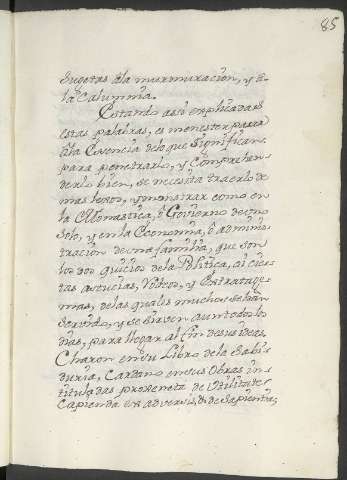 85
Sugetas á la murmuracion, y á
la Calumnia.
Estando assi explicadas
estas palabras, es menester passar
á la Esencia de lo que Significan:
para penetrarlo, y Comprehen-
derlo bien, se necesita traerlo de
mas lexos, y monstrar como en
la Monastica, ó Govierno de uno
Solo, y en la Economia, ó adminis-
tracion de una familia, que son
los dos quicios de la Politica, ai cier-
tas astucias, Rodeos, y Extratage-
mas, de las quales muchos se han
Servido, y se sirven aun todos los
dias, para llegar al fin de sus ideas.
Charon en su Libro de la Sabi-
duria, Cardano en sus Obras in-
tituladas proxeneta de Utilitate
Capienda ex adversis, & de Sapientia;